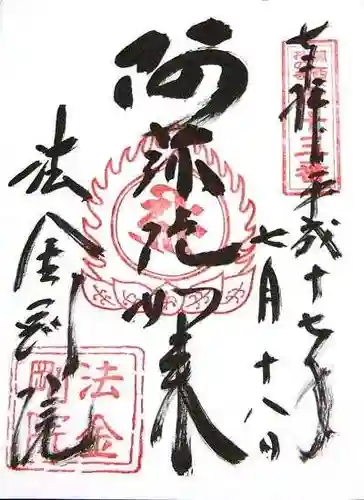 奉拝 平成十七年
七月十八日
阿弥陀如来
法金剛院
法金剛院